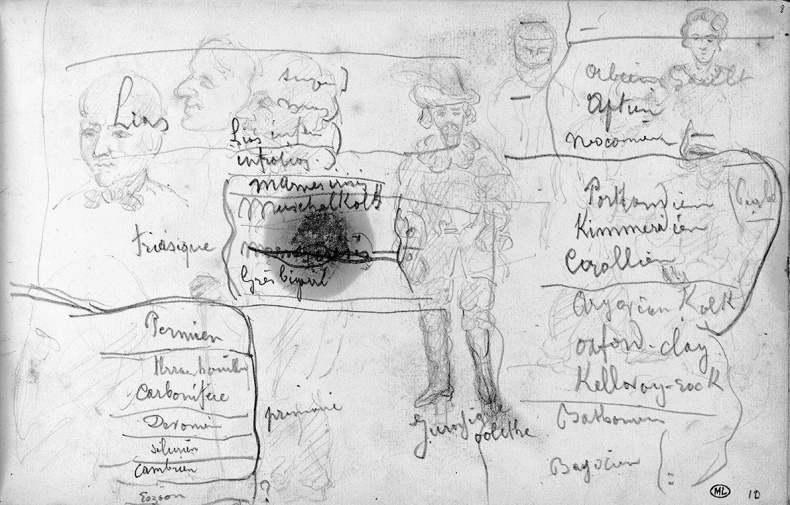 Lias
Lias infer
infralias
marnes iris
Muschelkalk
triasique
Grès bigarré
Permien
Terr. houiller
Carbonifère
Devonien
silurien
Cambrien
Eozoon
primaire
?
Jurassique
oolithe
Albien Gault
Aptien
neocomien
Portlandien
Kimmeridien
Corallien
Argovien Kalk
oxford-clay
Kelloway-rock
Bathonien
Bajocien
ML
10